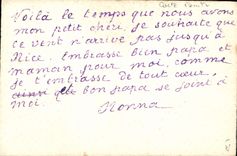 Voilà le temps que nous avons
mon petit chéri. Je souhaite que
ce vent n'arrive pas jusqu'à
Nice. Embrasse bien papa et
maman pour moi, comme
je t'embrasse de tout cœur,
ainsi que bon papa se joint à
moi.
Nonna